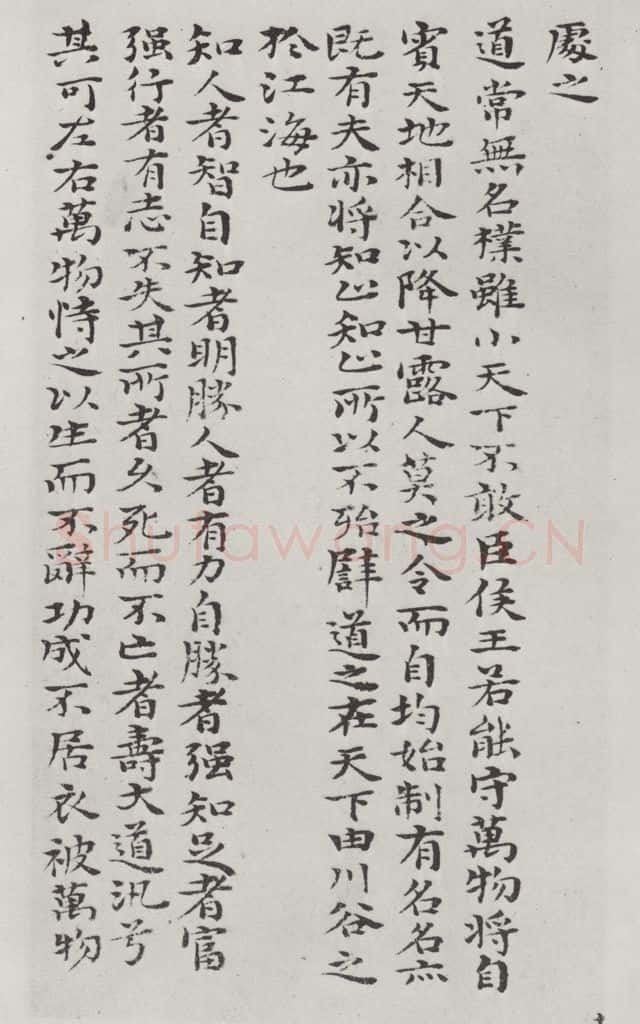 處之
道常無名樸雖小天下不敢臣侯王若能守萬物將自
賓天地相合以降甘露人莫之令而自均始制有名名亦
既有夫亦將知止知止所以不殆譬道之在天下由川谷之
於江海也
知人者智自知者明勝人者有力自勝者强知足者富
强行者有志不失其所者久死而不亡者壽大道汎兮
其可左右萬物恃之以生而不辭功成不居衣被萬物
Shufawang.CN